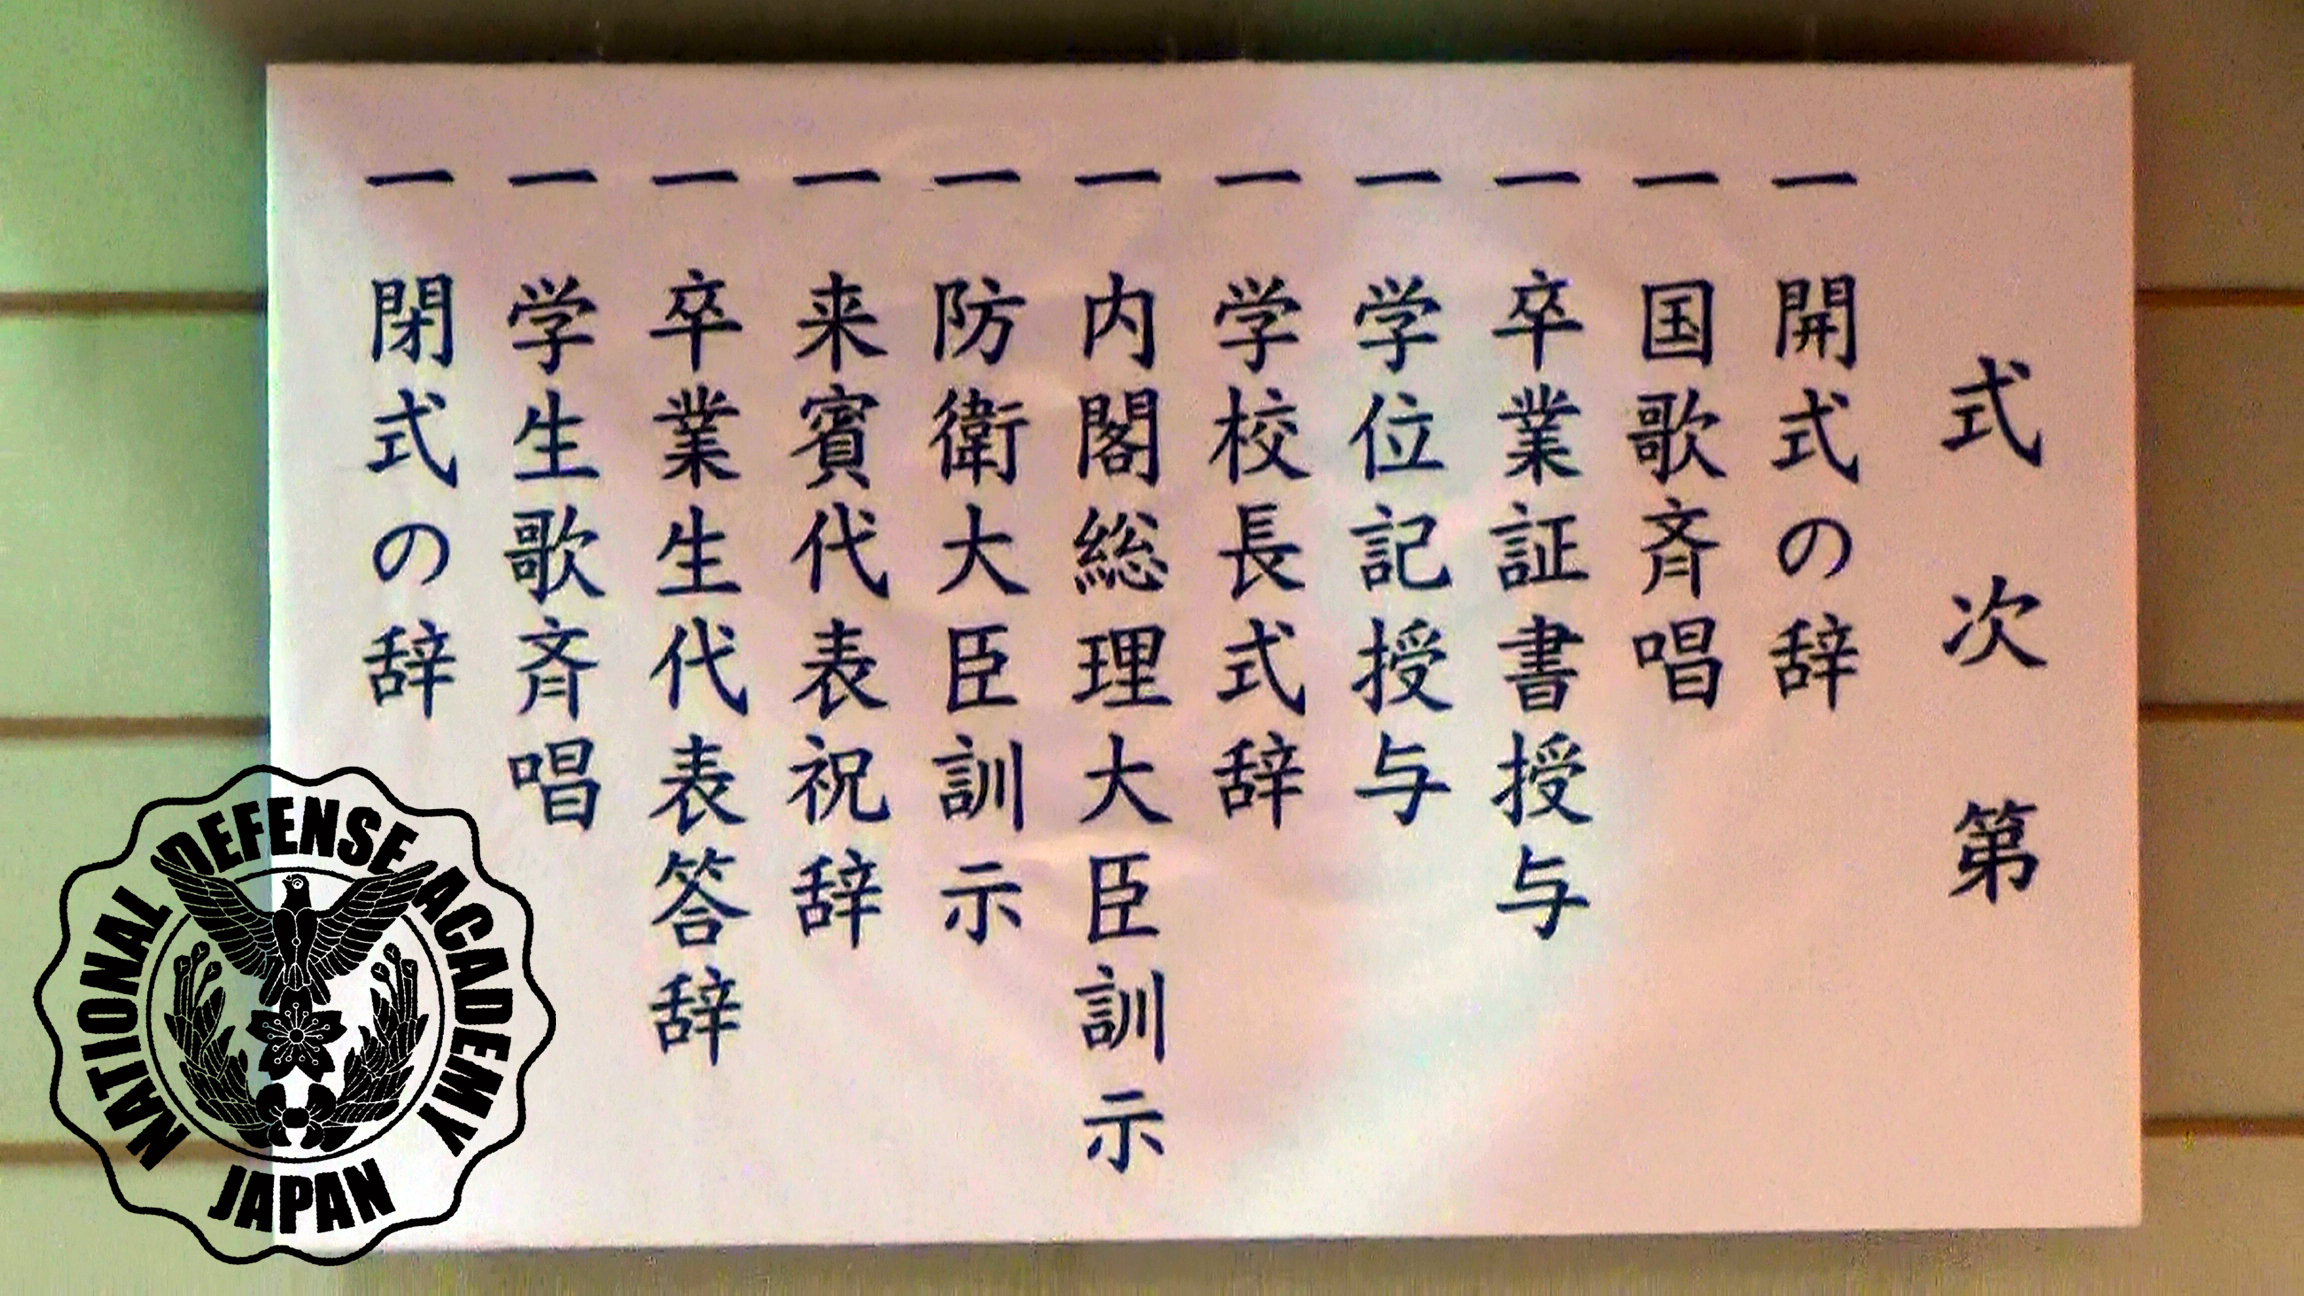 式次第
一 開式の辞
一 国歌斉唱
一 卒業証書授与
一 学位記授与
一 学校長式辞
一 内閣総理大臣訓示
一 防衛大臣訓示
一 来賓代表祝辞
一 卒業生代表答辞
一 学生歌斉唱
一 閉式の辞
NATIONAL DEFENSE ACADEMY
JAPAN